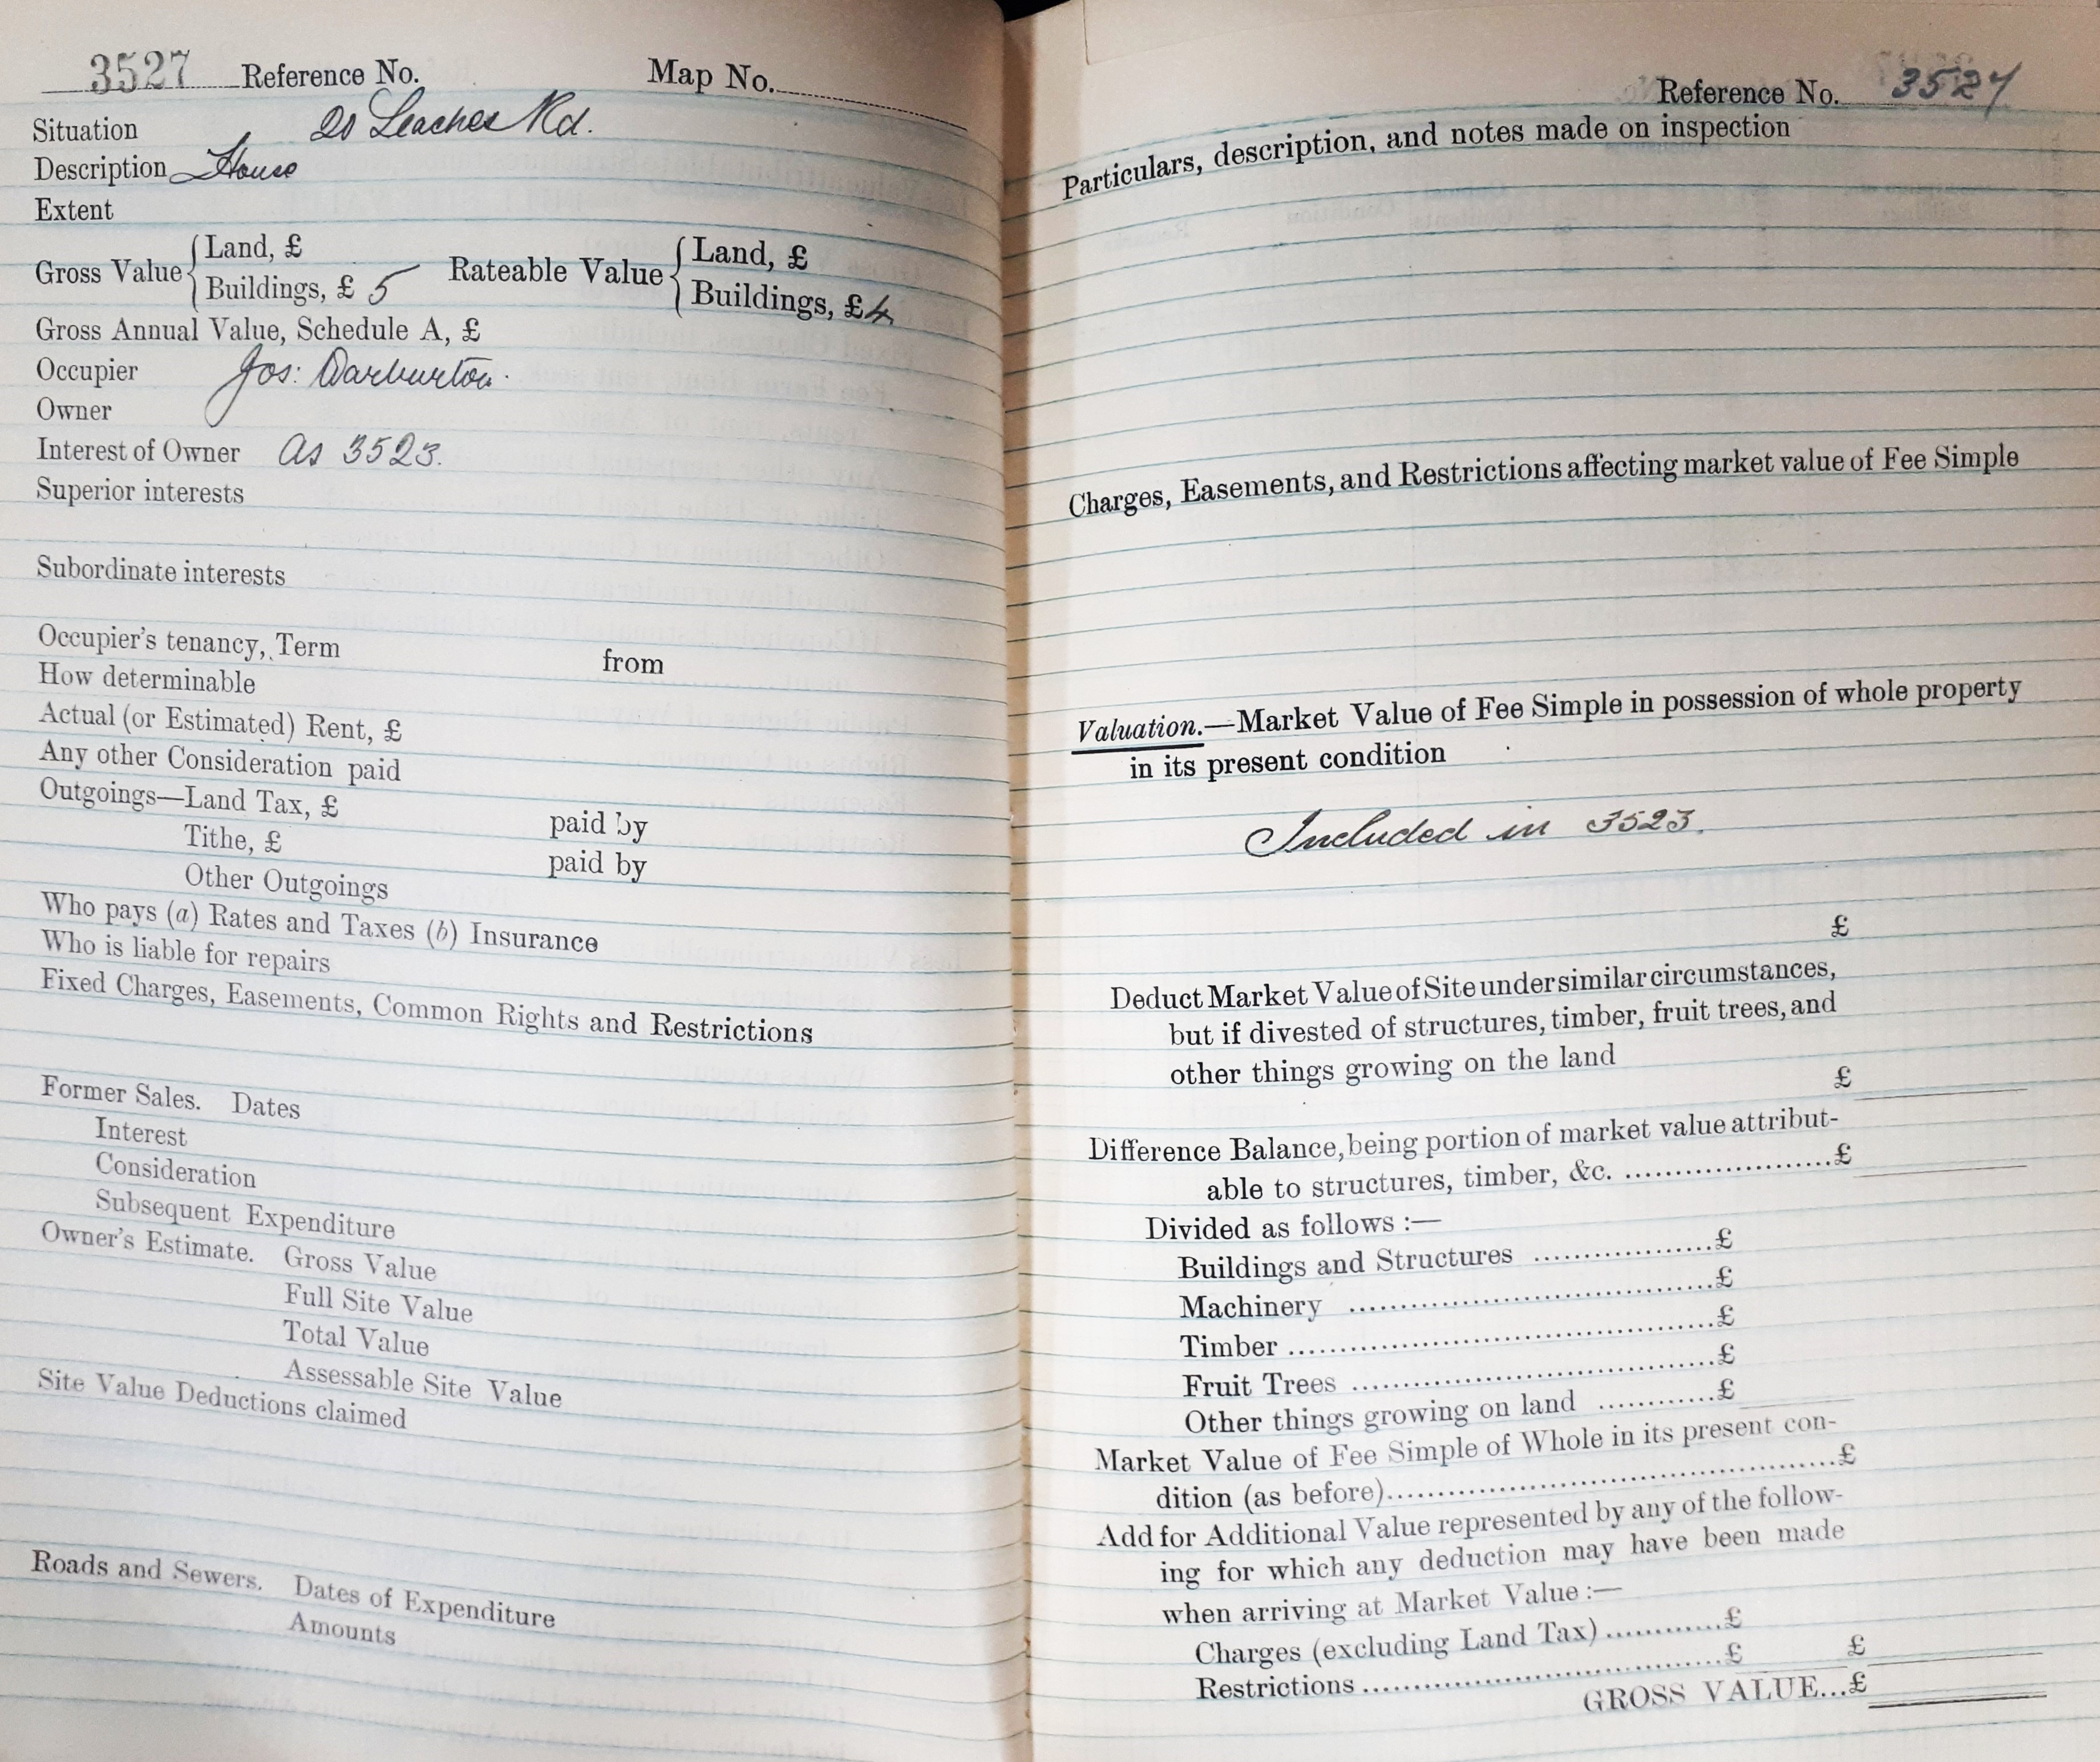 3527 Reference No. Map No.
Situation 20 Leaches Rd.
Description House
Extent
Gross Value { Land, £
Buildings, £ 5
Rateable Value { Land, £
Buildings, £ 4
Gross Annual Value, Schedule A, £
Occupier Jos: Warburton.
Owner
Interest of Owner As 3523.
Superior interests
Subordinate interests
Occupier's tenancy, Term from
How determinable
Actual (or Estimated) Rent, £
Any other Consideration paid
Outgoings—Land Tax, £ paid by
Tithe, £ paid by
Other Outgoings
Who pays (a) Rates and Taxes (b) Insurance
Who is liable for repairs
Fixed Charges, Easements, Common Rights and Restrictions
Former Sales. Dates
Interest
Consideration
Subsequent Expenditure
Owner's Estimate. Gross Value
Full Site Value
Total Value
Assessable Site Value
Site Value Deductions claimed
Roads and Sewers. Dates of Expenditure
Amounts
Reference No. 3527
Particulars, description, and notes made on inspection
Charges, Easements, and Restrictions affecting market value of Fee Simple
Valuation.—Market Value of Fee Simple in possession of whole property
in its present condition
Included in 3523.
£
Deduct Market Value of Site under similar circumstances,
but if divested of structures, timber, fruit trees, and
other things growing on the land
£
Difference Balance, being portion of market value attribut-
able to structures, timber, &c. ....................£
Divided as follows :—
Buildings and Structures ..................£
Machinery ....................................£
Timber ..........................................£
Fruit Trees ....................................£
Other things growing on land ............£
Market Value of Fee Simple of Whole in its present con-
dition (as before)............................................£
Add for Additional Value represented by any of the follow-
ing for which any deduction may have been made
when arriving at Market Value :—
Charges (excluding Land Tax) ............£
Restrictions ....................................£ £
GROSS VALUE...£